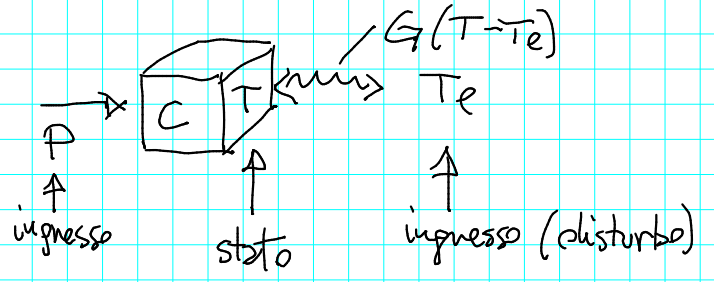 G(T-Te)
C
T
Te
P
ingresso
stato
ingresso (disturbo)